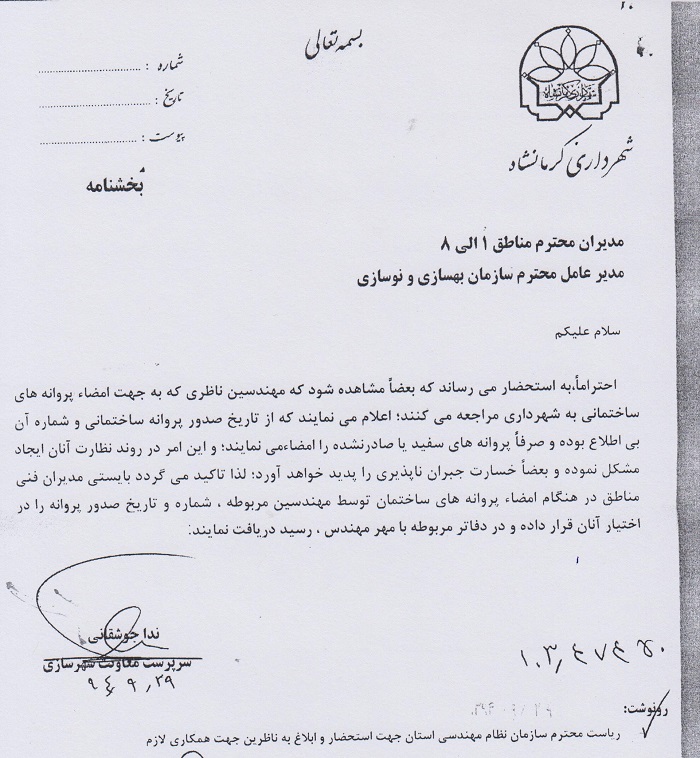 بسمه تعالی
شماره :
تاریخ :
پیوست :
شهرداری کرمانشاه
شهرداری کرمانشاه
بخشنامه
مدیران محترم مناطق ۱ الی ۸
مدیر عامل محترم سازمان بهسازی و نوسازی
سلام علیکم
احتراماً،به استحضار می رساند که بعضاً مشاهده شود که مهندسین ناظری که به جهت امضاء پروانه های
ساختمانی به شهرداری مراجعه می کنند؛ اعلام می نمایند که از تاریخ صدور پروانه ساختمانی و شماره آن
بی اطلاع بوده و صرفاً پروانه های سفید یا صادرنشده را امضاءمی نمایند؛ و این امر در روند نظارت آنان ایجاد
مشکل نموده و بعضاً خسارت جبران ناپذیری را پدید خواهد آورد؛ لذا تاکید می گردد بایستی مدیران فنی
مناطق در هنگام امضاء پروانه های ساختمان توسط مهندسین مربوطه ، شماره و تاریخ صدور پروانه را در
اختیار آنان قرار داده و در دفاتر مربوطه با مهر مهندس ، رسید دریافت نمایند:
ندا جوشقانی
سرپرست معاونت شهرسازی
۹۴،۹،۲۹
رونوشت:
ریاست محترم سازمان نظام مهندسی استان جهت استحضار و ابلاغ به ناظرین جهت همکاری لازم